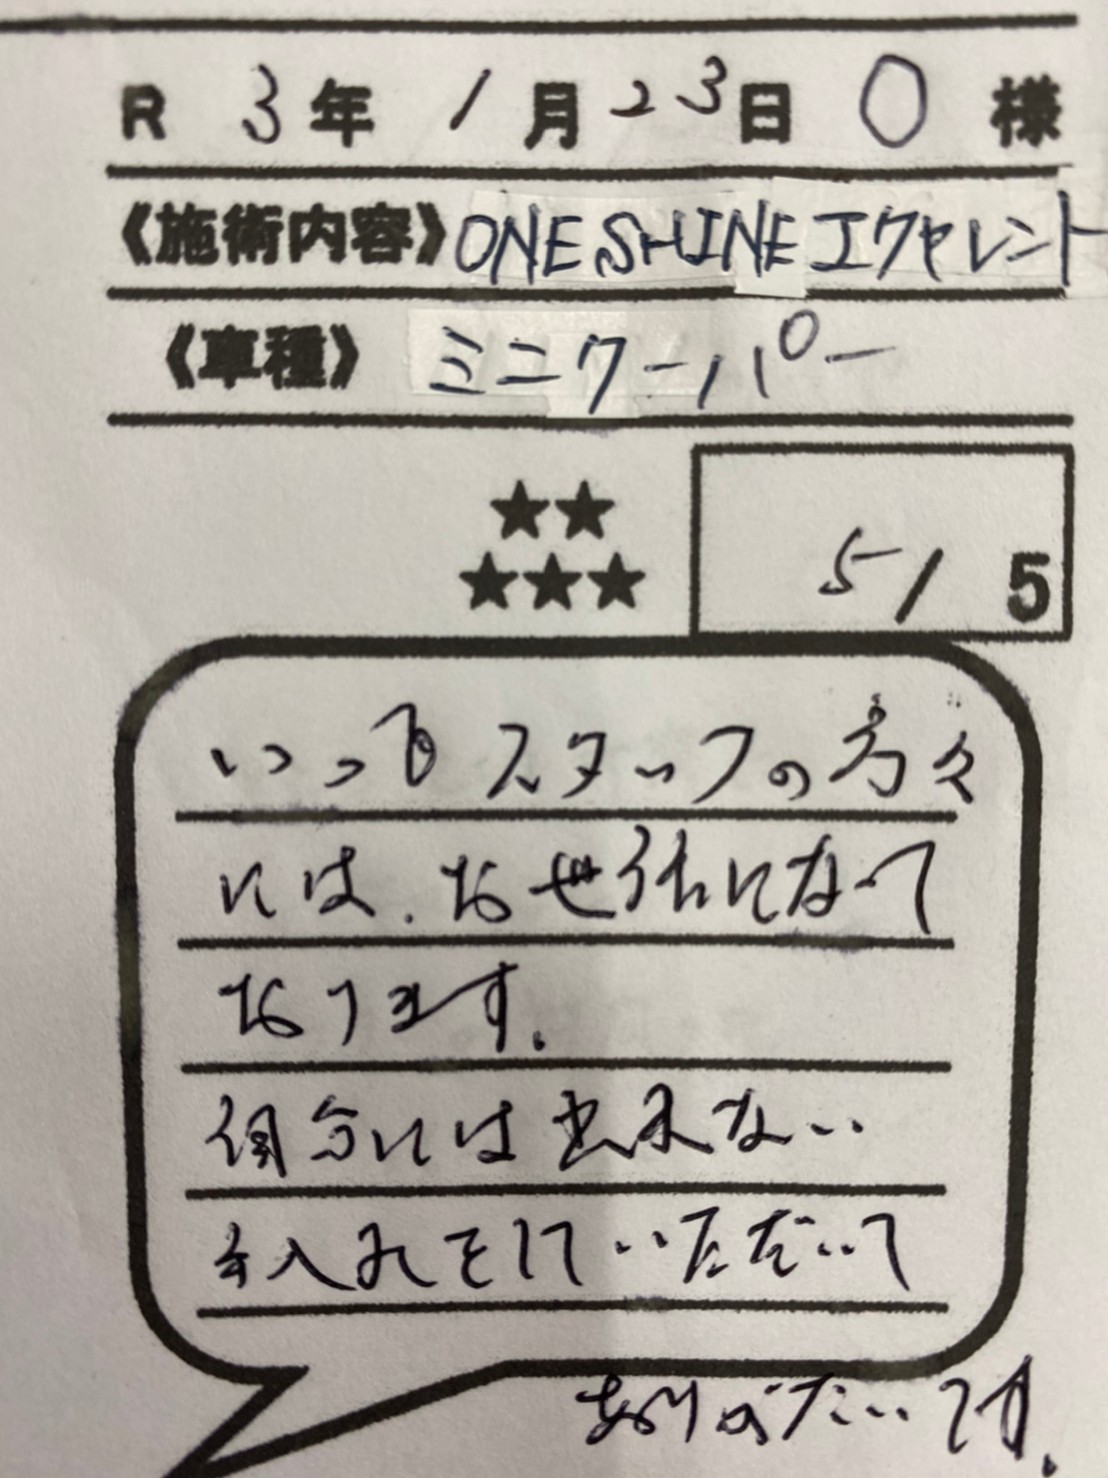 R 3年 1月23日 O 様
《施術内容》ONE SHINEエクセレント
《車種》ミニクーパー
★★
★★★
5/5
いつもスタッフの方々
には、お世話になって
おります。
自分には出来ない
手入れをして いただいて
ありがたいです。